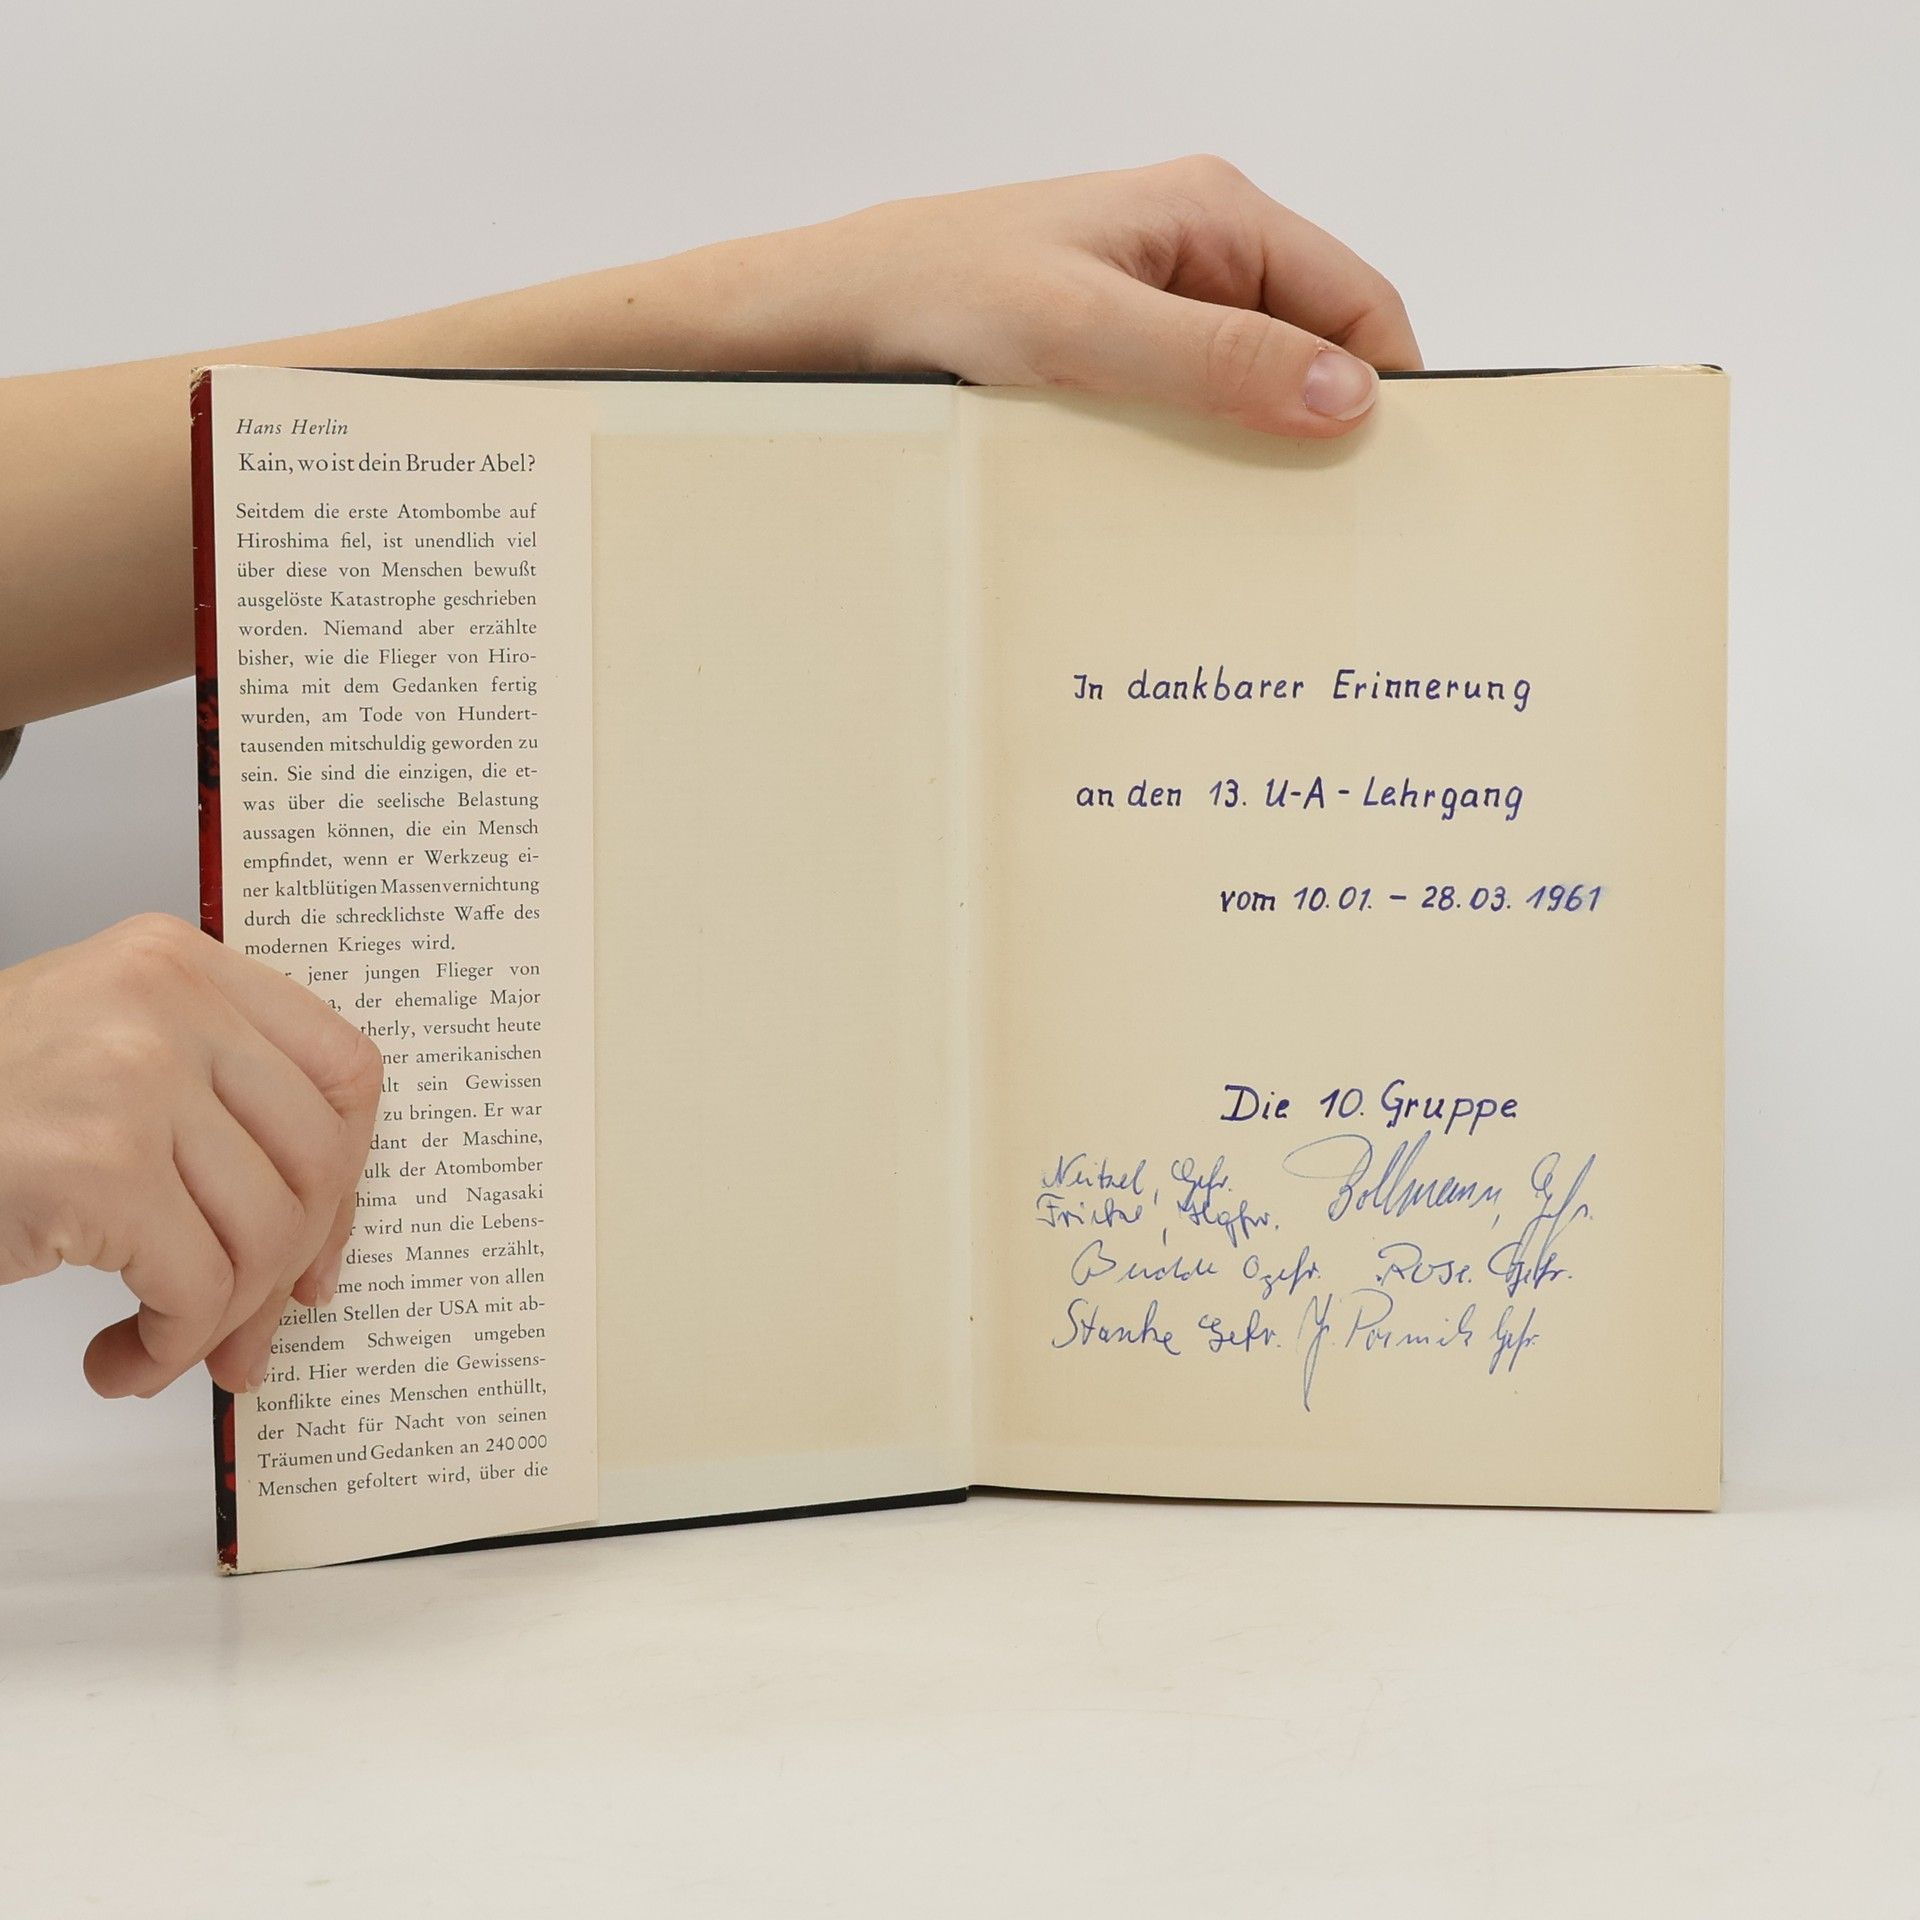 Hans Herlin
Kain, wo ist dein Bruder Abel?
Seitdem die erste Atombombe auf
Hiroshima fiel, ist unendlich viel
über diese von Menschen bewußt
ausgelöste Katastrophe geschrieben
worden. Niemand aber erzählte
bisher, wie die Flieger von Hiro-
shima mit dem Gedanken fertig
wurden, am Tode von Hundert-
tausenden mitschuldig geworden zu
sein. Sie sind die einzigen, die et-
was über die seelische Belastung
aussagen können, die ein Mensch
empfindet, wenn er Werkzeug ei-
ner kaltblütigen Massenvernichtung
durch die schrecklichste Waffe des
modernen Krieges wird.
jener jungen Flieger von
der ehemalige Major
therly, versucht heute
ner amerikanischen
alt sein Gewissen
zu bringen. Er war
dant der Maschine,
ulk der Atombomber
hima und Nagasaki
wird nun die Lebens-
dieses Mannes erzählt,
me noch immer von allen
ziellen Stellen der USA mit ab-
eisendem Schweigen umgeben
wird. Hier werden die Gewissens-
konflikte eines Menschen enthüllt,
der Nacht für Nacht von seinen
Träumen und Gedanken an 240 000
Menschen gefoltert wird, über die
In dankbarer Erinnerung
an den 13. U-A-Lehrgang
vom 10.01. - 28.03. 1961
Die 10. Gruppe
Neitzel, Gefr.
Bollmann, Gefr.
Budde Ogefr. Rose. Gefr.
Stanke Gefr.